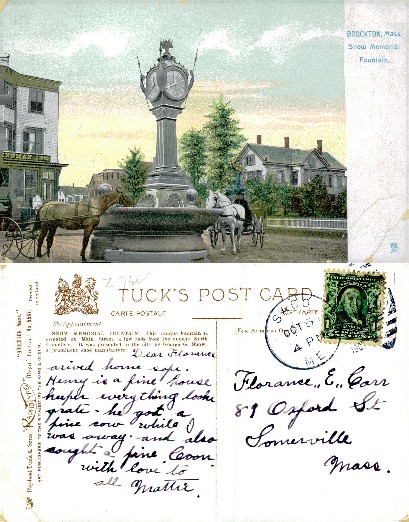 BROCKTON, Mass.
Snow Memorial
Fountain.
TUCK'S POST CARD
CARTE POSTALE
By Appointment
SNOW MEMORIAL FOUNTAIN. This unique fountain is
situated on Main Street, a few rods from the
It was presented to the city by George G. Snow,
a prominent shoe manufacturer.
Dear Florence
arived home safe.
Henry is a fine house
keeper everything looks
grate - he got a
fine sow while I
was away - and also
caught a fine Coon
with love to
all Mattie.
OCT 5
4 PM
ME.
Florance "E" Carr
89 Oxford St
Somerville
Mass.